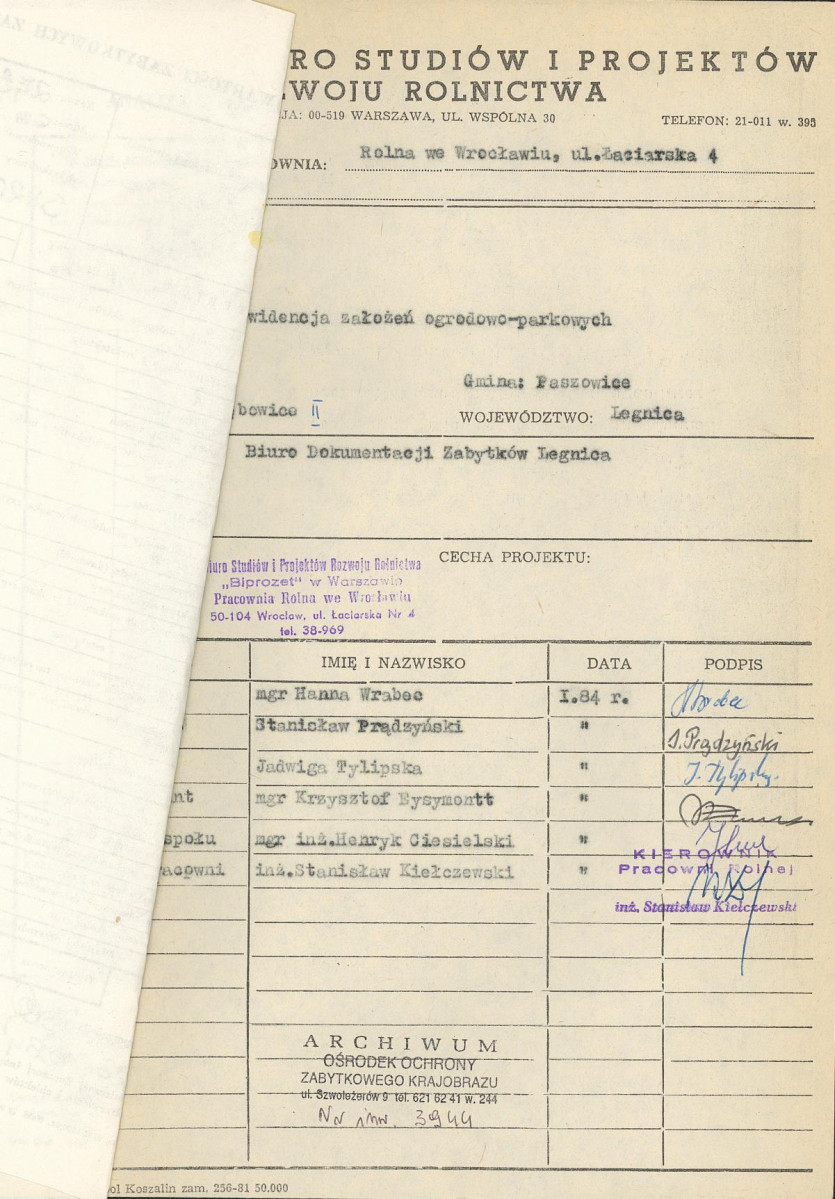 RO STUDIÓW I PROJEKTÓW
WOJU ROLNICTWA
JA: 00-519 WARSZAWA, UL. WSPÓLNA 30
TELEFON: 21-011 w. 395
OWNIA: Rolna we Wrocławiu, ul.Łaciarska 4
widencja założeń ogrodowo-parkowych
Gmina: Paszowice
bowice II WOJEWÓDZTWO: Legnica
Biuro Dokumentacji Zabytków Legnica
CECHA PROJEKTU:
iuro Studiów i Projektów Rozwoju Rolnictwa
„Biprozet" w Warszawie
Pracownia Rolna we Wrocławiu
50-104 Wrocław, ul. Łaciarska Nr 4
tel. 38-969
IMIĘ I NAZWISKO DATA PODPIS
mgr Hanna Wrabec I.84 r.
Stanisław Prądzyński " S.Prądzyński
Jadwiga Tylipska " J. Tylipska
nt mgr Krzysztof Eysymontt "
społu mgr inż.Henryk Ciesielski "
acowni inż.Stanisław Kiełczewski "
KIEROWNIK
Pracowni Rolnej
inż. Stanisław Kiełczewski
ARCHIWUM
OŚRODEK OCHRONY
ZABYTKOWEGO KRAJOBRAZU
ul. Szwoleżerów 9 tel. 621 62 41 w. 244
Nr inw. 3944
ol Koszalin zam. 256-81 50.000